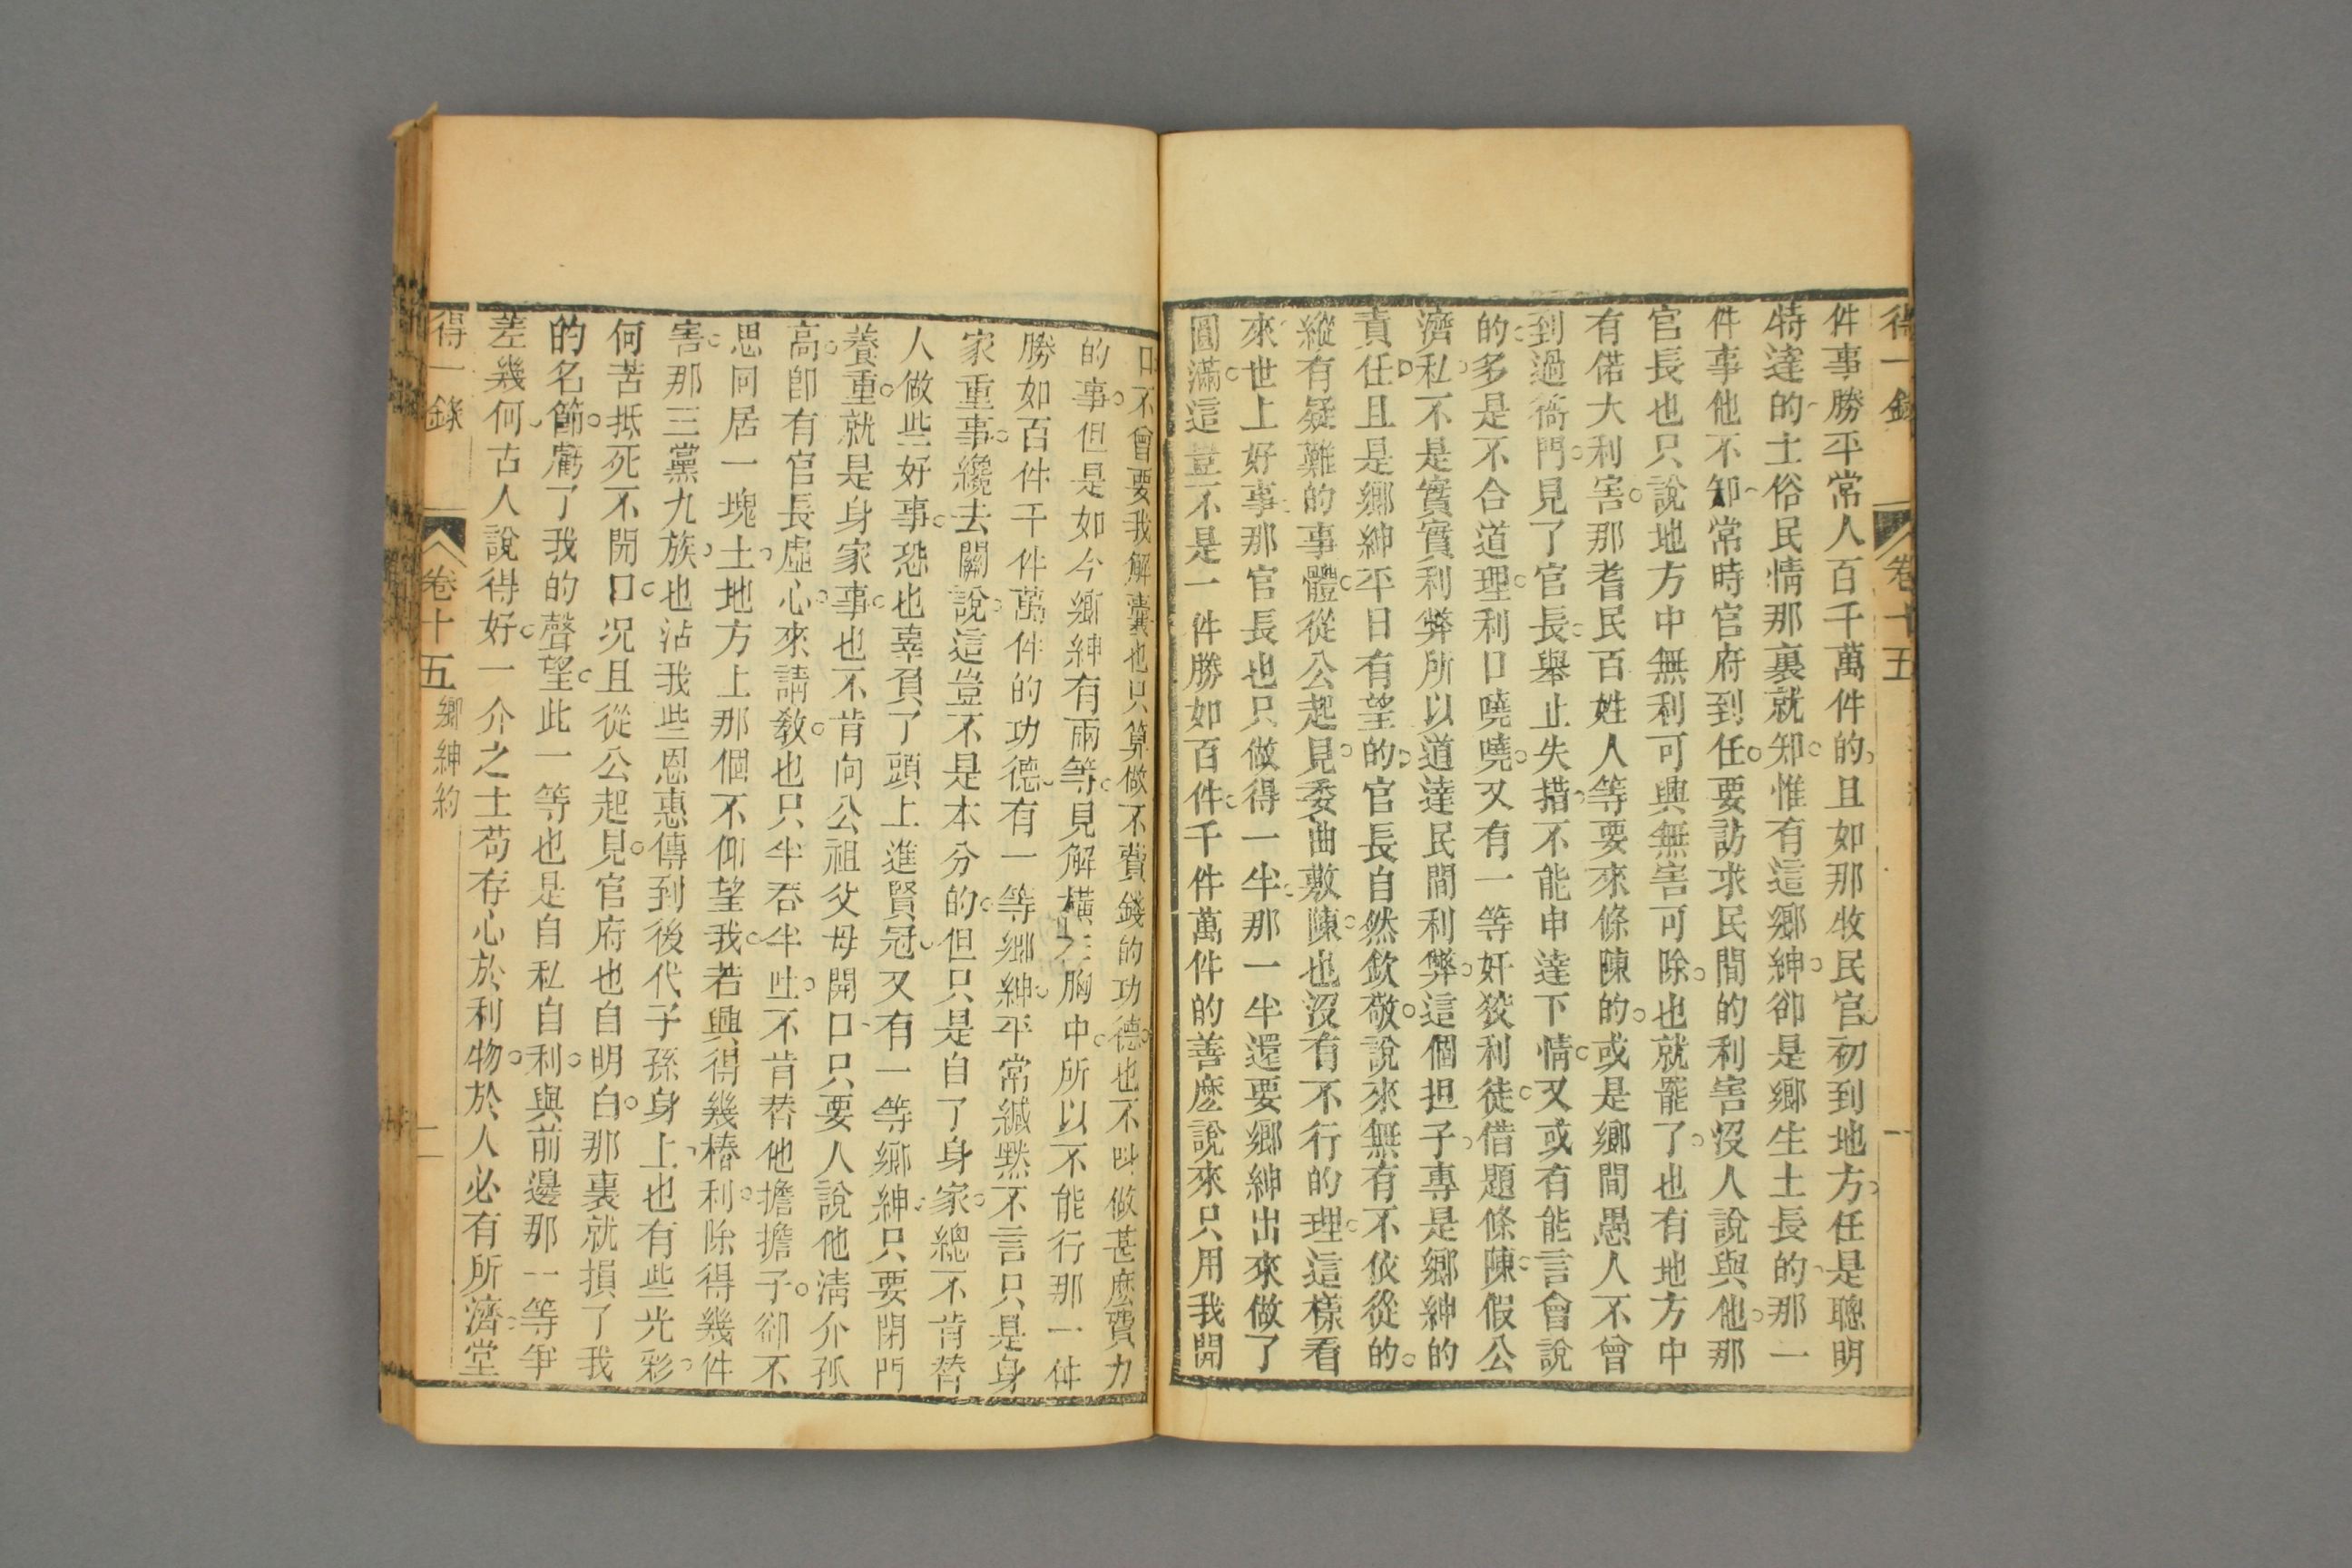 得一錄
卷十五
一
件事勝平常人百千萬件的且如那牧民官初到地方任是聰明
特達的土俗民情那裏就知惟有這鄉紳卻是鄉生土長的那一
件事他不知常時官府到任要訪求民間的利害沒人說與他那
官長也只說地方中無利可興無害可除也就罷了也有地方中
有偌大利害那耆民百姓人等要來條陳的或是鄉間愚人不曾
到過衙門見了官長舉止失措不能申達下情又或有能言會說
的多是不合道理利口嘵嘵又有一等奸狡利徒借題條陳假公
濟私不是實實利弊所以道達民間利弊這個担子專是鄉紳的
責任且是鄉紳平日有望的官長自然欽敬說來無有不依從的
縱有疑難的事體從公起見委曲敷陳也沒有不行的理這樣看
來世上好事那官長也只做得一半那一半還要鄉紳出來做了
圓滿這豈不是一件勝如百件千件萬件的善麽說來只用我開
口不曾要我解囊也只算做不費錢的功德也不叫做甚麽費力
的事但是如今鄉紳有兩等見解橫在胸中所以不能行那一件
勝如百件千件萬件的功德有一等鄉紳平常緘默不言只是身
家重事纔去關說這豈不是本分的但只是自了身家總不肯替
人做些好事恐也辜負了頭上進賢冠又有一等鄉紳只要閉門
養重就是身家事也不肯向公祖父母開口只要人說他淸介孤
高卽有官長虛心來請敎也只半吞半吐不肯替他擔擔子卻不
思同居一塊土地方上那個不仰望我若興得幾樁利除得幾件
害那三黨九族也沾我些恩惠傳到後代子孫身上也有些光彩
何苦抵死不開口况且從公起見官府也自明白那裏就損了我
的名節虧了我的聲望此一等也是自私自利與前邊那一等爭
差幾何古人說得好一介之士苟存心於利物於人必有所濟堂
得一錄
卷十五
鄉紳約
二